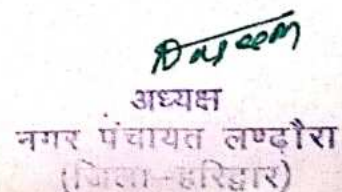 अध्यक्ष
नगर पंचायत लण्ढौरा
(जिला-हरिद्वार)